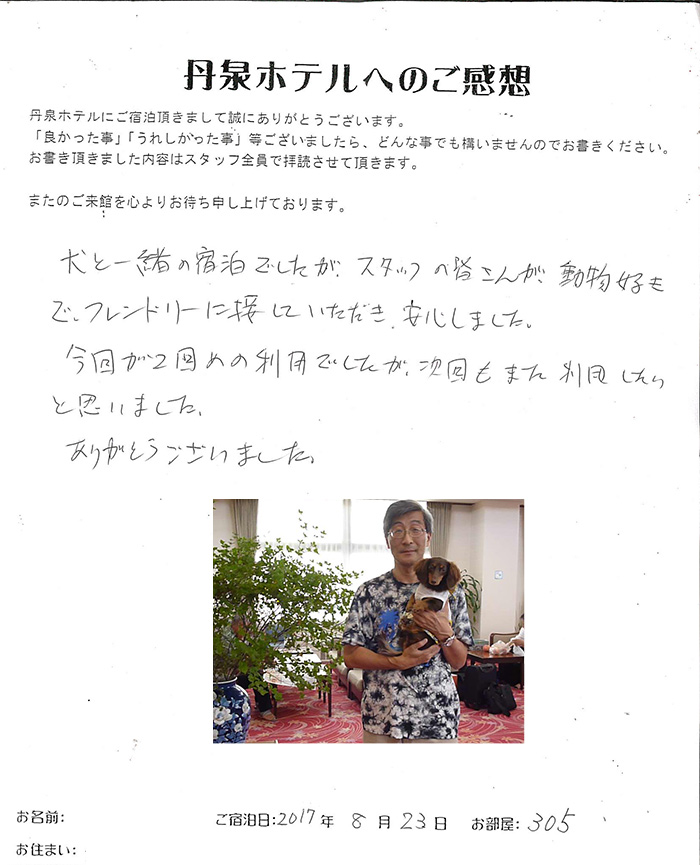 丹泉ホテルへのご感想
丹泉ホテルにご宿泊頂きまして誠にありがとうございます。
「良かった事」「うれしかった事」等ございましたら、どんな事でも構いませんのでお書きください。
お書き頂きました内容はスタッフ全員で拝読させて頂きます。
またのご来館を心よりお待ち申し上げております。
犬と一緒の宿泊でしたが、スタッフの皆さんが、動物好き
で、フレンドリーに接していただき、安心しました。
今回が2回めの利用でしたが、次回もまた利用したい
と思いました。
ありがとうございました。
お名前: ご宿泊日:2017年 8月 23日 お部屋: 305
お住まい: